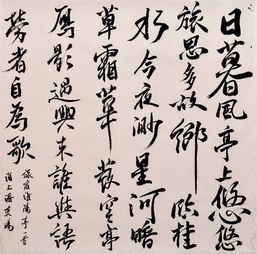 日暮風亭上悠悠
旅思多故鄉臨桂
水今夜渺星河暗
草霜華發空亭
鴈影過興來誰與語
勞者自為歌
旅宿淮陽亭一首